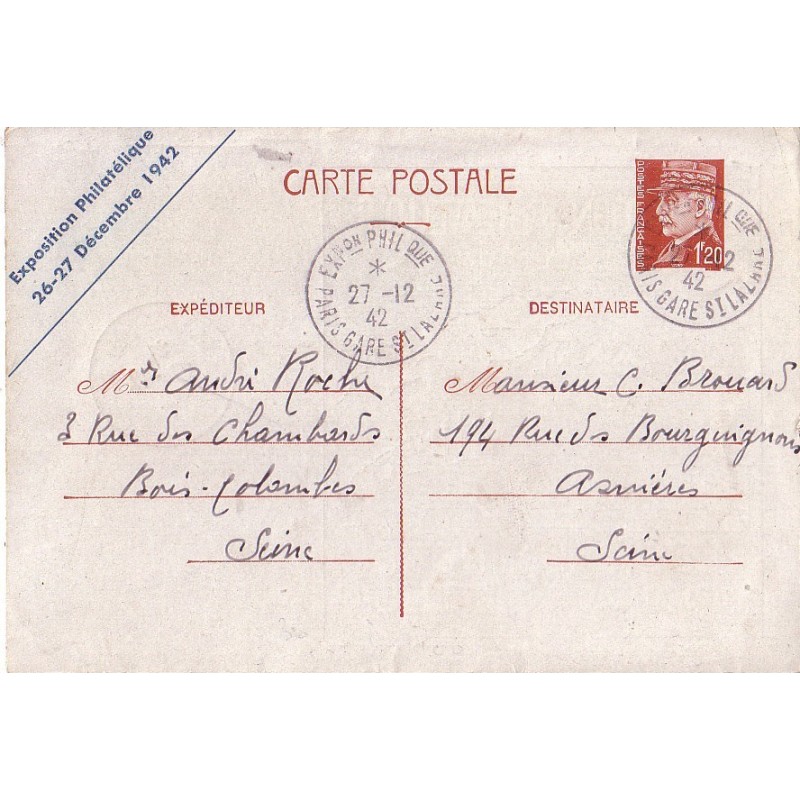 Exposition Philatélique
26-27 Décembre 1942
CARTE POSTALE
POSTES FRANÇAISES
1F20
EXPON PHILQUE
*
27 -12
42
PARIS GARE ST LAZARE
PHILQUE
27 12
42
PARIS GARE ST LAZARE
EXPÉDITEUR
Mr André Roche
3 Rue des Chambards
Bois-Colombes
Seine
DESTINATAIRE
Monsieur C. Brouard
194 Rue des Bourguignons
Asnières
Seine